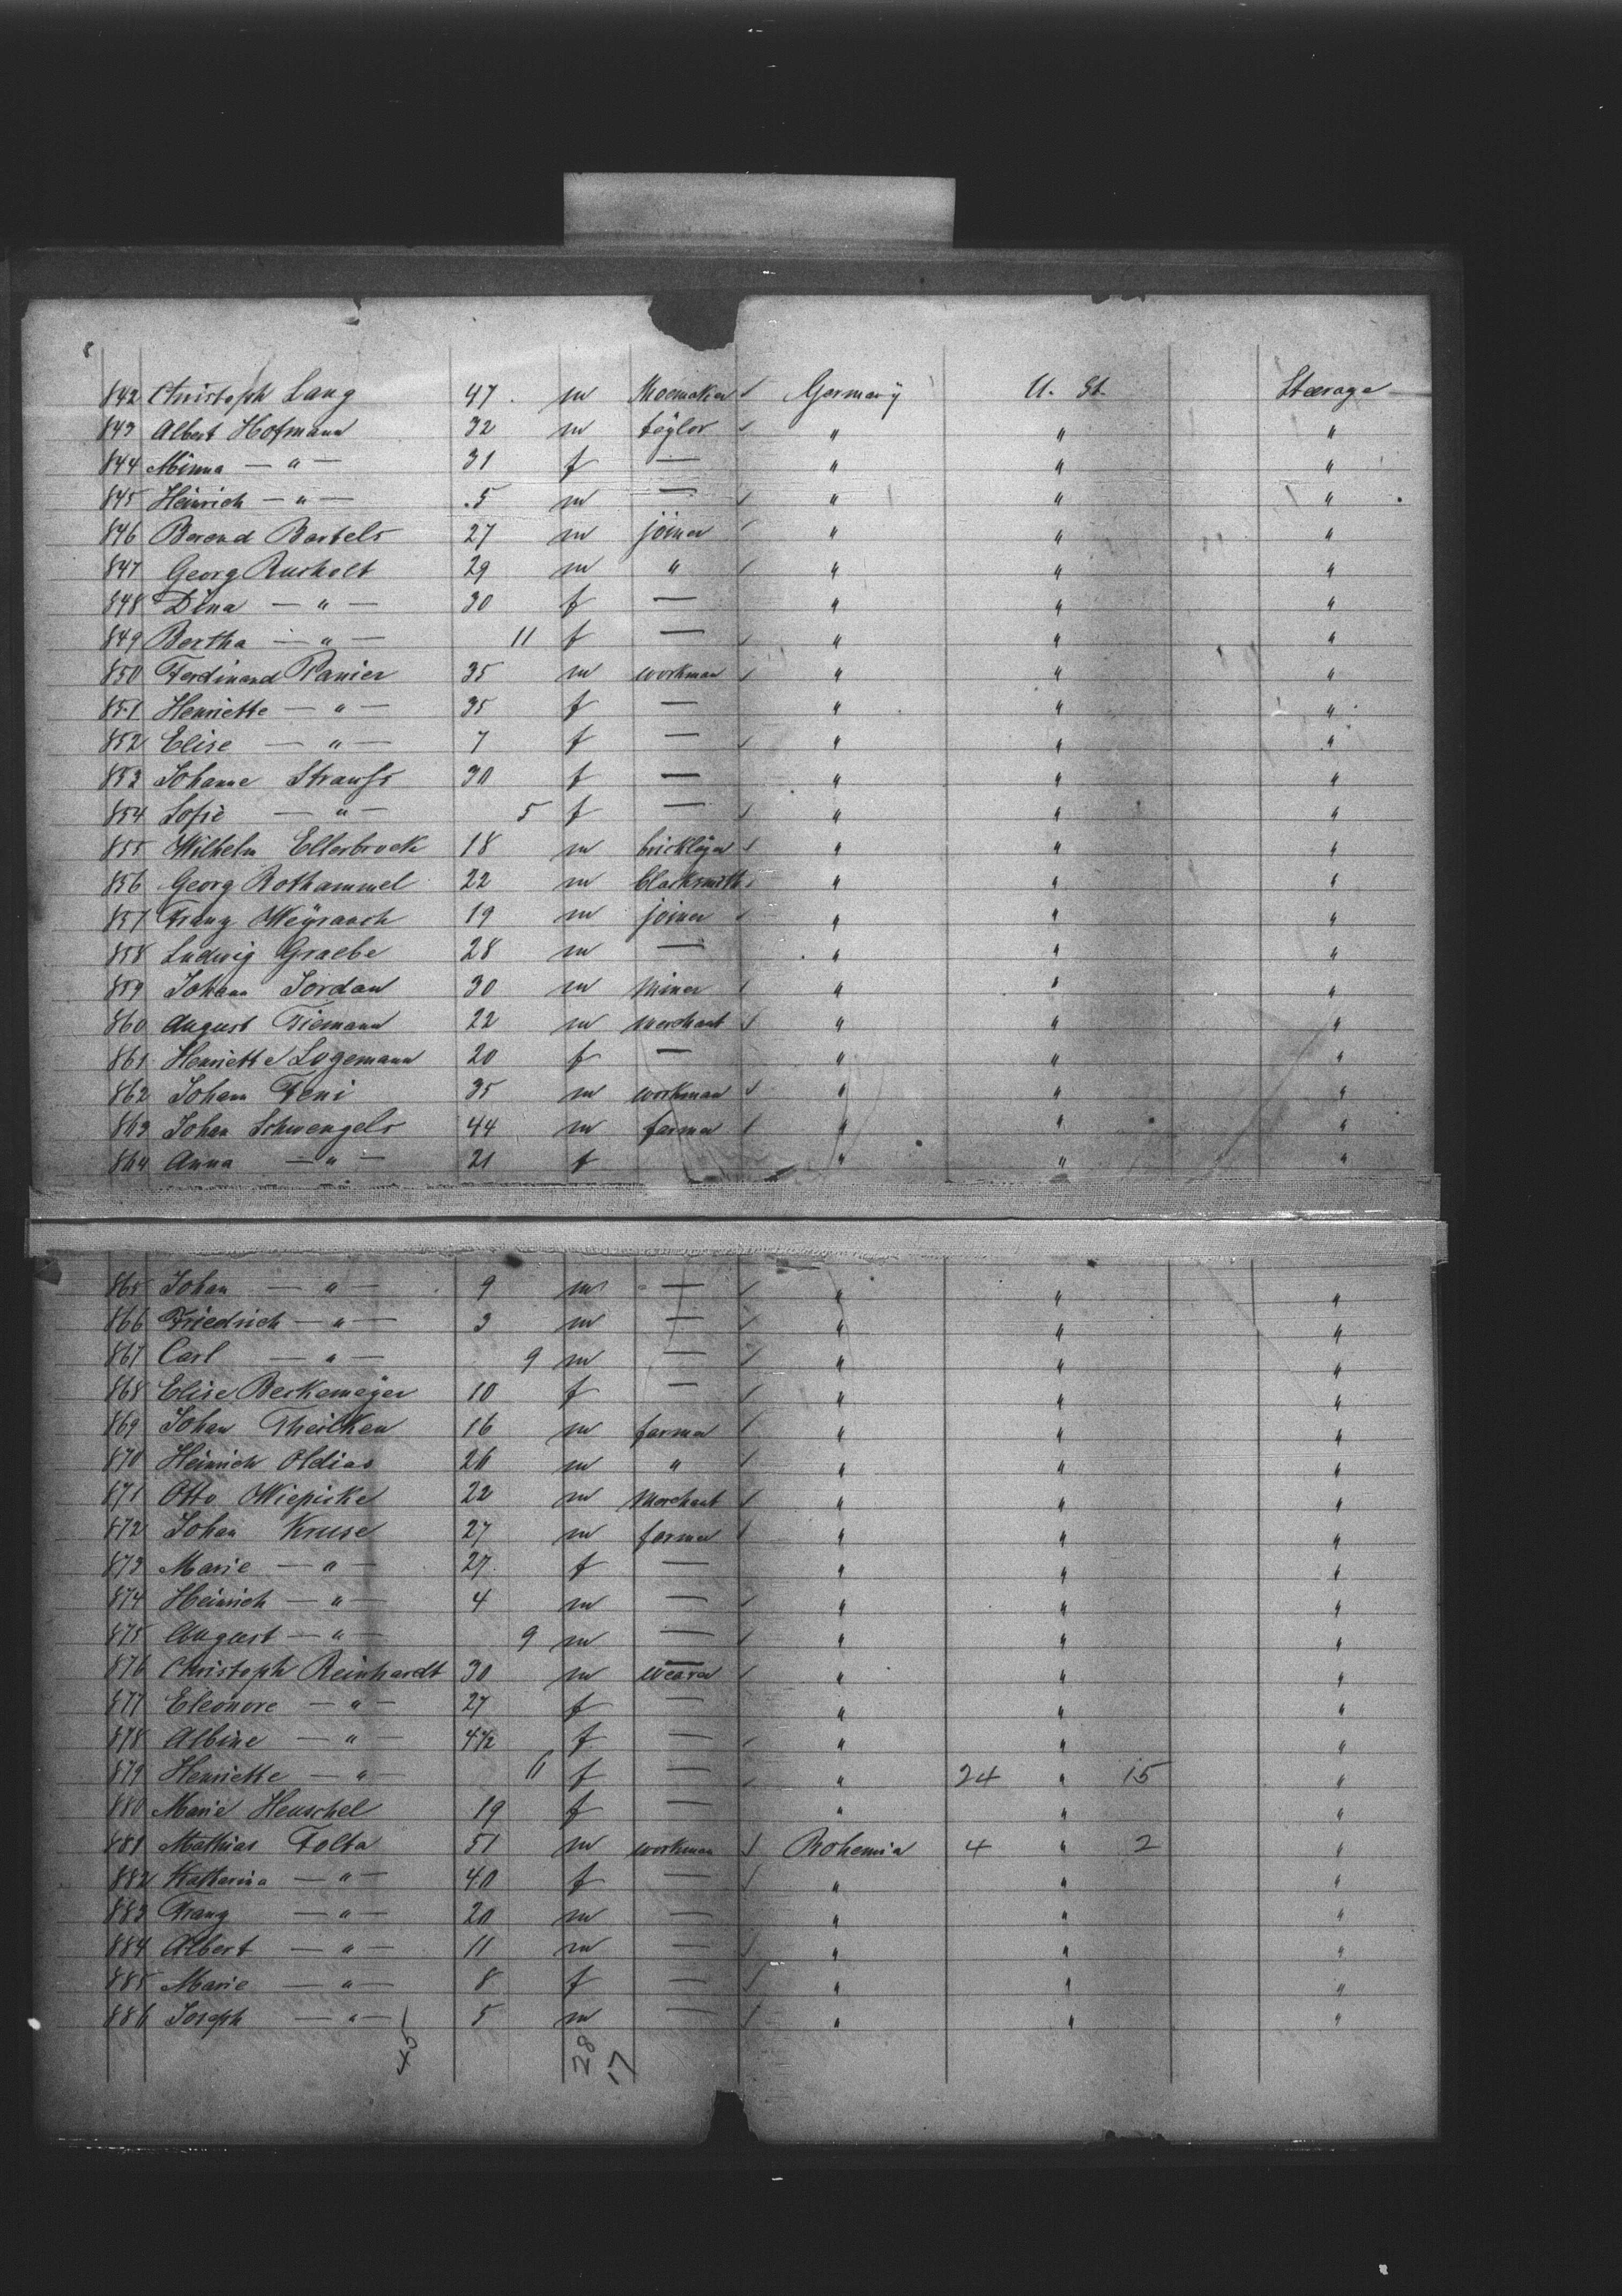 842 Christoph Lang 47 m Shoemaker Germany U. St. Steerage
843 Albert Hofmann 32 m taÿlor " " "
844 Minna — " — 31 f — " " "
845 Heinrich — " — 5 m — " " "
846 Berend Bartels 27 m joiner " " "
847 Georg Rusholt 29 m " " " "
848 Dina — " — 30 f — " " "
849 Bertha — " — 11 f — " " "
850 Ferdinand Panier 35 m workman " " "
851 Henriette — " — 35 f — " " "
852 Elise — " — 7 f — " " "
853 Johanne Strauss 30 f — " " "
854 Sofie — " — 5 f — " " "
855 Wilhelm Ellerbrock 18 m bricklÿer " " "
856 Georg Rothammel 22 m blacksmith " " "
857 Franz Weÿrauch 19 m joiner " " "
858 Ludwig Graebe 28 m — " " "
859 Johann Jordan 30 m Miner " " "
860 August Tiemann 22 m merchant " " "
861 Henriette Logemann 20 f — " " "
862 Johann Feni 35 m workman " " "
863 Johan Schwengels 44 m farmer " " "
864 Anna — " — 21 f " " "
865 Johan — " — 9 m — " " "
866 Friedrich — " — 3 m — " " "
867 Carl — " — 9 m — " " "
868 Elise Beckemeÿer 10 f — " " "
869 Johan Theilken 16 m farmer " " "
870 Heinrich Oldias 26 m " " " "
871 Otto Wiepicke 22 m Merchant " " "
872 Johan Kruse 27 m farmer " " "
873 Marie — " — 27 f — " " "
874 Heinrich — " — 4 m — " " "
875 August — " — 9 m — " " "
876 Christoph Reinhardt 30 m weaver " " "
877 Eleonore — " — 27 f — " " "
878 Albine — " — 4 1/2 f — " " "
879 Henriette — " — 11 f — " 24 " 15 "
880 Marie Henschel 19 f — " " "
881 Mathias Folta 51 m workman Bohemia 4 " 2 "
882 Katharina — " — 40 f — " " "
883 Franz — " — 20 m — " " "
884 Albert — " — 11 m — " " "
885 Marie — " — 8 f — " " "
886 Joseph — " — 5 m — " " "
45 28 17